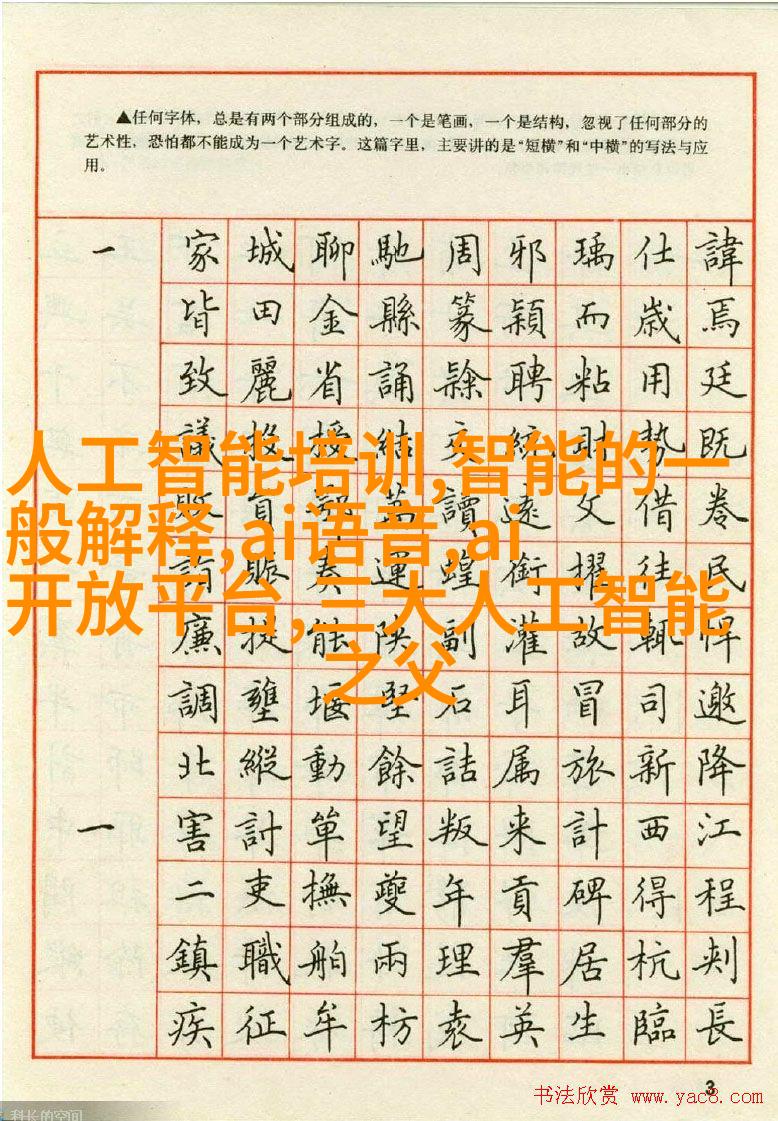 ▲任何字体，总是有两个部分组成的，一个是笔画，一个是结构，忽视了任何部分的
艺术性，恐怕都不能成为一个艺术字。这篇字里，主要讲的是“短横”和“中横”的写法与应
用。
一 家城聊馳周邪瑀仕諱
皆田金縣篆穎而歲焉
致麗省誦除聘粘用廷
議 授結 統財勢既
人工智能培训,智能的一
敗 讀遠文借卷
般解释,ai语音,ai
賑奏運蝗銜擢往民
开放平台,三大人工智能
廉提能陝副灌故輒悍
之父
調壅堰堅石耳冒司邀
北縱動餘詰属旅新降
一 害討單望叛来計西江
二吏撫夔年貢碑得程
鎮職舶兩理羣居杭刺
疾征牟枋袁英生臨長
3
书法欣赏 www.yac8.com
科长的空间